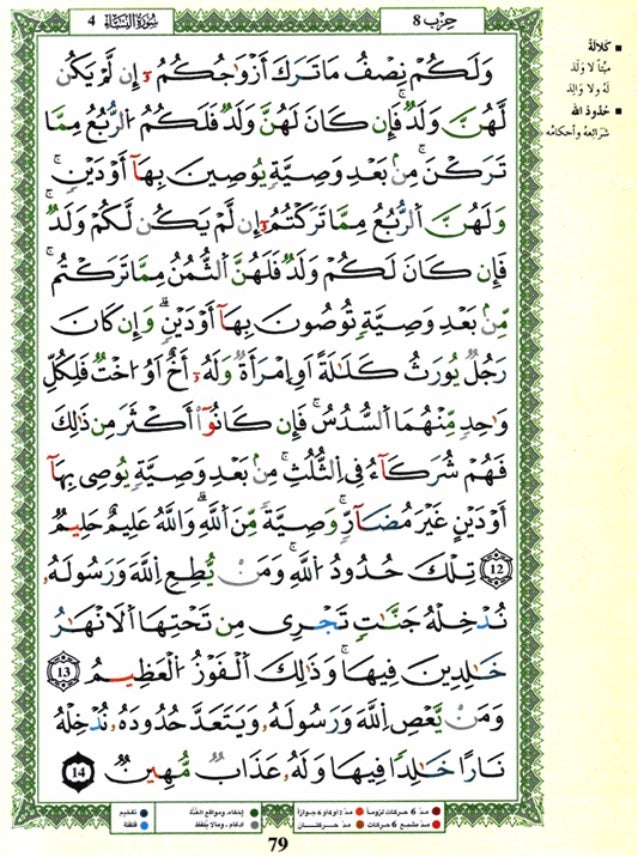 حِزْب 8
سُورَةُ النِّسَاءِ 4
وَلَكُمْ نِصْفُ مَا تَرَكَ أَزْوَٰجُكُمُۥٓ إِن لَّمْ يَكُن
لَّهُنَّ وَلَدٌۖ فَإِن كَانَ لَهُنَّ وَلَدٌ فَلَكُمُ اُ۬لرُّبُعُ مِمَّا
تَرَكْنَۖ مِنۢ بَعْدِ وَصِيَّةٍ يُوصِينَ بِهَآ أَوْ دَيْنٍۖ
وَلَهُنَّ اَ۬لرُّبُعُ مِمَّا تَرَكْتُمُۥٓ إِن لَّمْ يَكُن لَّكُمْ وَلَدٌۖ
فَإِن كَانَ لَكُمْ وَلَدٌ فَلَهُنَّ اَ۬لثُّمُنُ مِمَّا تَرَكْتُمۖ
مِّنۢ بَعْدِ وَصِيَّةٍ تُوصُونَ بِهَآ أَوْ دَيْنٍۗ وَإِن كَانَ
رَجُلٌ يُورَثُ كَلَٰلَةً أَوِ اِ۪مْرَأَةٌ وَلَهُۥٓ أَخٌ أَوُ اخْتٌ فَلِكُلِّ
وَٰحِدٍ مِّنْهُمَا اَ۬لسُّدُسُۖ فَإِن كَانُوٓاْ أَكْثَرَ مِن ذَٰلِكَ
فَهُمْ شُرَكَآءُ فِي اِ۬لثُّلُثِۖ مِنۢ بَعْدِ وَصِيَّةٍ يُوصِي بِهَآ
أَوْ دَيْنٍ غَيْرَ مُضَآرٍّۖ وَصِيَّةً مِّنَ اَ۬للَّهِۗ وَاللَّهُ عَلِيمٌ حَلِيمٌ
12 تِلْكَ حُدُودُ اُ۬للَّهِۖ وَمَنْ يُّطِعِ اِ۬للَّهَ وَرَسُولَهُۥ
نُدْخِلْهُ جَنَّٰتٍ تَجْرِي مِن تَحْتِهَا اَ۬لَانْهَٰرُ
خَٰلِدِينَ فِيهَاۖ وَذَٰلِكَ اَ۬لْفَوْزُ اُ۬لْعَظِيمُ 13
وَمَنْ يَّعْصِ اِ۬للَّهَ وَرَسُولَهُۥ وَيَتَعَدَّ حُدُودَهُۥ نُدْخِلْهُ
نَارًا خَٰلِدًا فِيهَا وَلَهُۥ عَذَابٌ مُّهِينٌ 14
▪ كَلَالَةً
ميّتاً لا وَلَدَ
لَهُ ولا وَالِدَ
▪ حُدُودُ الله
شَرَائِعُهُ وأحكامُه
مدّ 6 حركات لزوماً مدّ 2 أو 4 أو 6 جوازاً إخفاء، ومواقع الغُنَّة تفخيم
مدّ مشبع 6 حركات مدّ حركتـان إدغام، وما لا يُلفَظ قلقلة
79